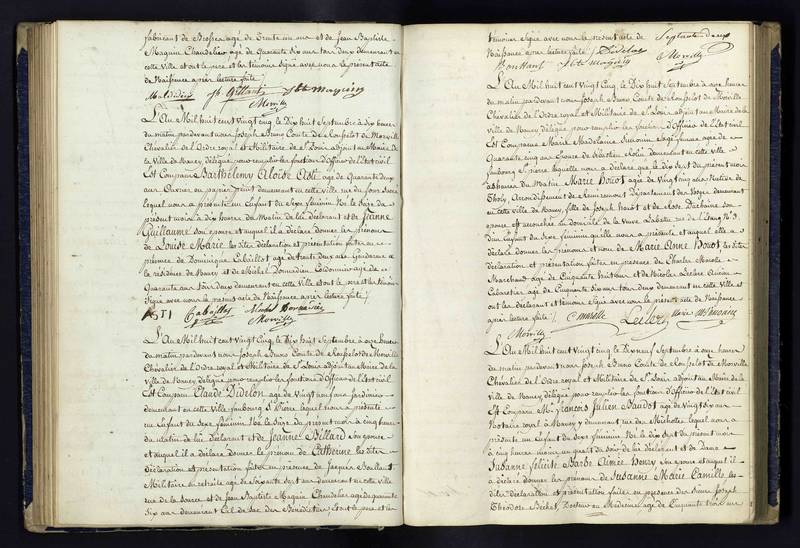 fabricant de Brosses agé de Trente un ans et de Jean Baptiste
Maguin Chandelier agé de Quarante six ans tous deux demeurant en
cette ville et ont le pere et les témoins signé avec nous le présent acte
de Naissance après lecture faite
Morville
L'An Mil huit cent Vingt cinq le Dix huit Septembre à dix heures
du matin pardevant nous Joseph Bruno Comte de Rousselot de Morville
Chevalier de l'Ordre royal et Militaire de St Louis adjoint au Maire de
la Ville de Nancy délégué pour remplir les fonctions d'Officier de l'Etat civil
Est Comparu Barthélemy Aloïse Asti agé de Quarante deux
ans Ouvrier en papier peint demeurant en cette ville rue du four sacré
lequel nous a présenté un Enfant du Sexe féminin Né le Seize du
présent mois à dix heures du Matin de lui déclarant et de Jeanne
Guillaume son épouse et auquel il a déclaré donner les prénoms
de Louise Marie les dites déclaration et présentation faites en
présence de Dominique Cabaillot agé de trente deux ans Gendarme à
la résidence de Nancy et de Michel Cordonnier agé de
Quarante ans tous deux demeurant en cette Ville et ont le pere et les témoins
Signé avec nous le présent acte de Naissance après lecture faite
ASTI Cabaillot
Morville
L'An Mil huit cent Vingt Cinq le Dix huit Septembre à onze heures
du matin pardevant nous Joseph Bruno Comte de Rousselot de Morville
Chevalier de l'Ordre royal et Militaire de St Louis adjoint au Maire de la
Ville de Nancy délégué pour remplir les fonctions d'Officier de l'Etat civil
Est Comparu Claude Didelon agé de Vingt neuf ans Jardinier
demeurant en cette Ville faubourg St Pierre lequel nous a présenté
un Enfant du Sexe féminin Né le Seize du présent mois à cinq heures
du matin de lui déclarant et de Jeanne Béllard son épouse
et auquel il a déclaré donner le prénom de Catherine les dites
déclaration et présentation faites en présence de Jacques
Militaire en retraite agé de Soixante sept ans demeurant en cette ville
rue de la Source et de Jean Baptiste Maguin Chandelier agé de quarante
six ans demeurant Cul de Sac des Bénédictins, et ont le pere et les
témoins signé avec nous le présent acte de
Naissance après lecture faite Didelon
Morville
L'An Mil huit cent Vingt Cinq le Dix huit Septembre à onze heures
du matin pardevant nous Joseph Bruno Comte de Rousselot de Morville
Chevalier de l'Ordre royal et Militaire de St Louis adjoint au Maire de la
Ville de Nancy délégué pour remplir les fonctions d'Officier de l'Etat civil
Est Comparue Marie Madelaine Simonin Sage femme agée de
Quarante cinq ans épouse de Sébastien demeurant en cette ville
faubourg St pierre, laquelle nous a déclaré que le dix Sept du présent mois
à heures du Matin Marie Bouot agée de Vingt cinq ans Native de
Tholy, Arrondissement de Remiremont Département des Vosges demeurant
en cette ville de Nancy, fille de Joseph Bouot et de Rose
épouse est accouchée au domicile de la Veuve rue de l'Etang No 3.
d'un Enfant du Sexe féminin qu'elle nous a présenté et auquel elle a
déclaré donner les prénoms et nom de Marie Anne Bouot les dites
déclaration et présentation faites en présence de Charles
Marchand agé de Cinquante huit ans et de Nicolas
Cabaretier agé de Cinquante six ans tous deux demeurant en cette Ville et
ont les déclarant et témoins Signé avec nous le présent acte de Naissance
après lecture faite
Morville
L'An Mil huit cent Vingt cinq le Dix neuf Septembre à onze heures
du matin pardevant nous Joseph Bruno Comte de Rousselot de Morville
Chevalier de l'Ordre royal et Militaire de St Louis adjoint au Maire de la
Ville de Nancy délégué pour remplir les fonctions d'Officier de l'Etat civil
Est Comparu Mr François Julien Baudot agé de Vingt six ans
Notaire royal à Nancy y demeurant rue des Michottes lequel nous a
présenté un Enfant du Sexe féminin Né le dix sept du présent mois
à cinq heures moins un quart du Soir de lui déclarant et de Dame
Susanne félicité Barbe Aimée Henry son épouse et auquel il
a déclaré donner les prénoms de Susanne Marie Camille les
dites déclaration et présentation faites en présence des Sieurs Joseph
Théodore Béchet, Docteur en Médecine agé de Cinquante trois ans